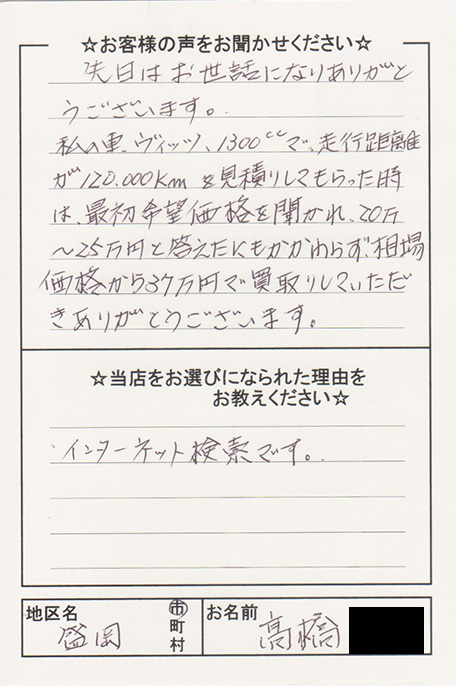 ☆お客様の声をお聞かせください☆
先日はお世話になりありがと
うございます。
私の車、ヴィッツ、1300ccで、走行距離
が120.000kmを見積りしてもらった時
は、最初希望価格を聞かれ、20万
～25万円と答えたにもかかわらず、相場
価格から37万円で買取りしていただ
きありがとうございます。
☆当店をお選びになられた理由を
お教えください☆
インターネット検索です。
地区名 盛岡 市町村 お名前 高橋